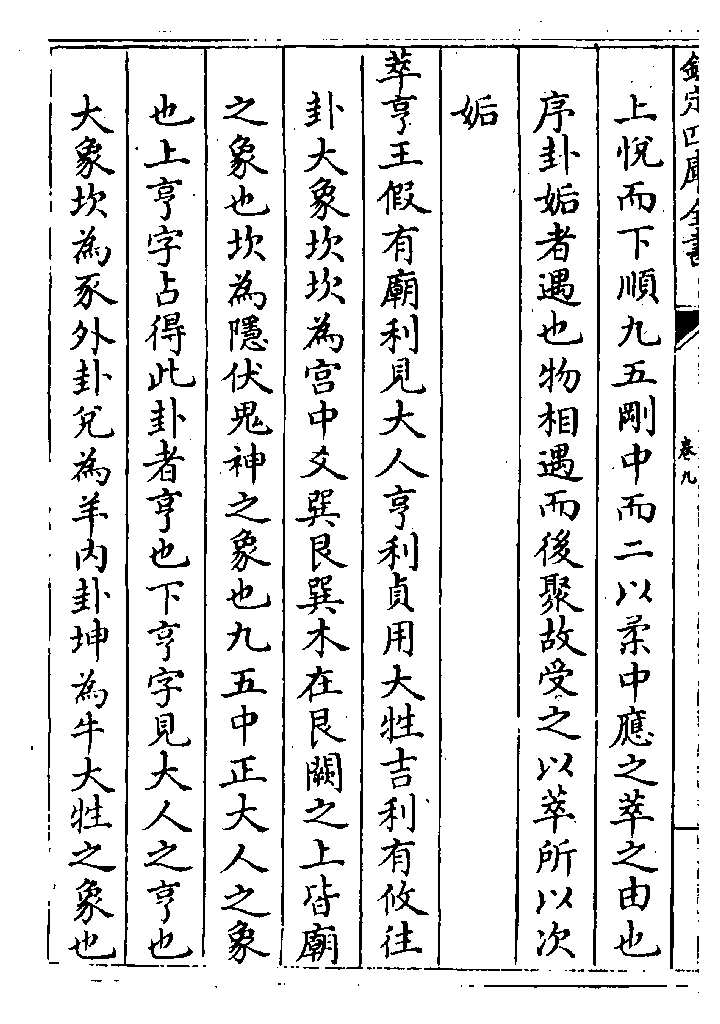 欽定四庫全書
卷九
上恱而下順九五剛中而二以柔中應之萃之由也
序卦姤者遇也物相遇而後聚故受之以萃所以次
姤
萃亨王假有廟利見大人亨利貞用大牲吉利有攸往
卦大象坎坎為宫中爻巽艮巽木在艮闕之上皆廟
之象也坎為隱伏鬼神之象也九五中正大人之象
也上亨字占得此卦者亨也下亨字見大人之亨也
大象坎為豕外卦兌為羊内卦坤為牛大牲之象也